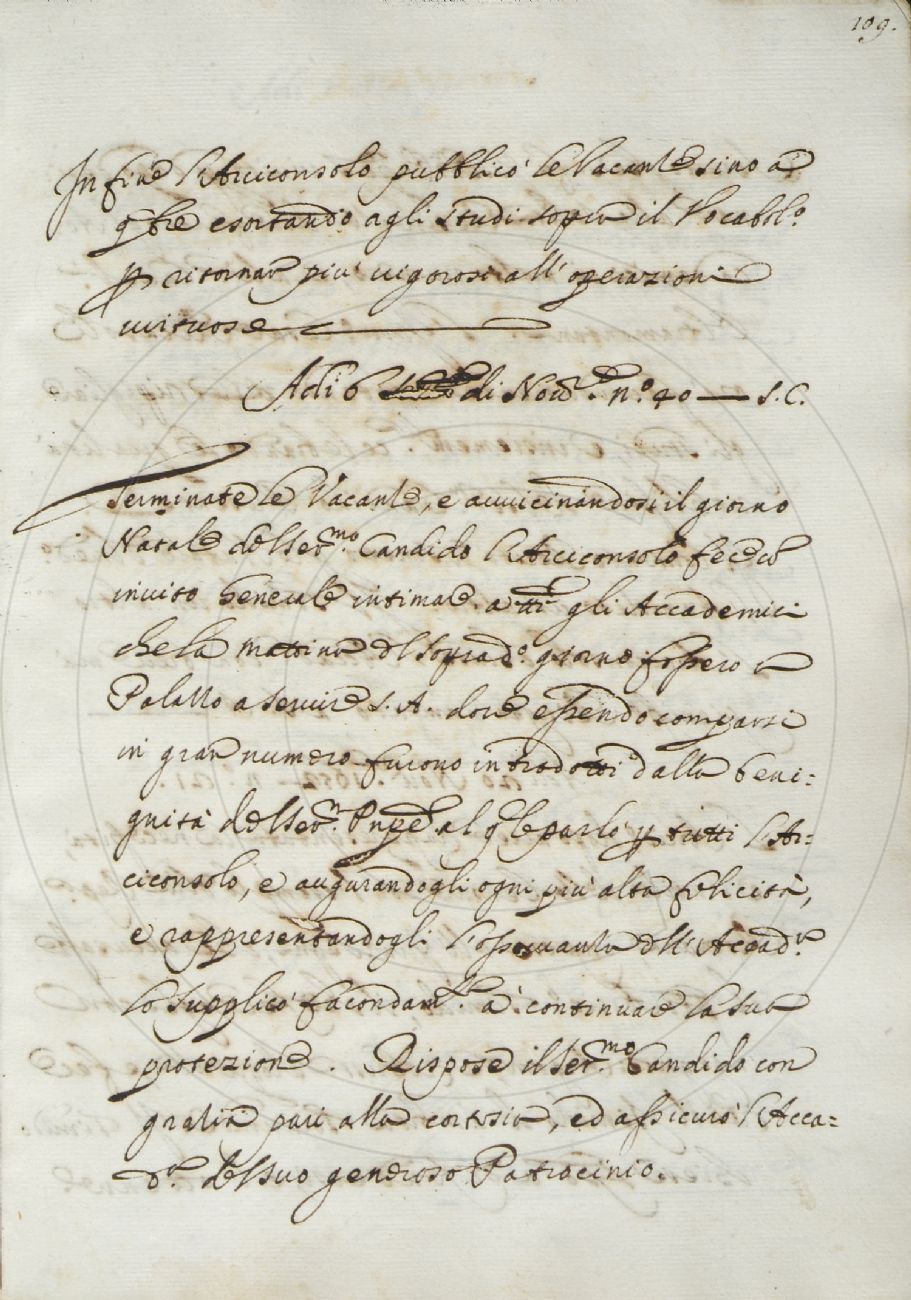 109.
In fine l'Arciconsolo pubblicò le Vacante sino a
9bre esortando agli studi sopra il Vocabol.º
p ritornar più vigorosi all'operazioni
virtuose
Adi 6 di Nov.e n.º 40 — S.C.
Terminate le Vacante, e avvicinandosi il giorno
Natale del Ser.mo Candido l'Arciconsolo fece con
invito Generale intimare a tti gli Accademici
che la mattina del soprad.º giorno fossero a
Palazzo a servire S.A. dove essendo comparsi
in gran numero furono introdotti dalla beni:
gnità del Ser.mo Pnpe. al qle parlò p tutti l'Ar:
ciconsolo, e augurandogli ogni più alta felicità,
e rappresentandogli l'osservanza dell'Accad.a
lo supplicò facondam.te à continuare la sua
protezione. Rispose il Ser.mo Candido con
grazia pari alla cortesia, ed assicurò l'Acca=
d.a del suo generoso Patrocinio.